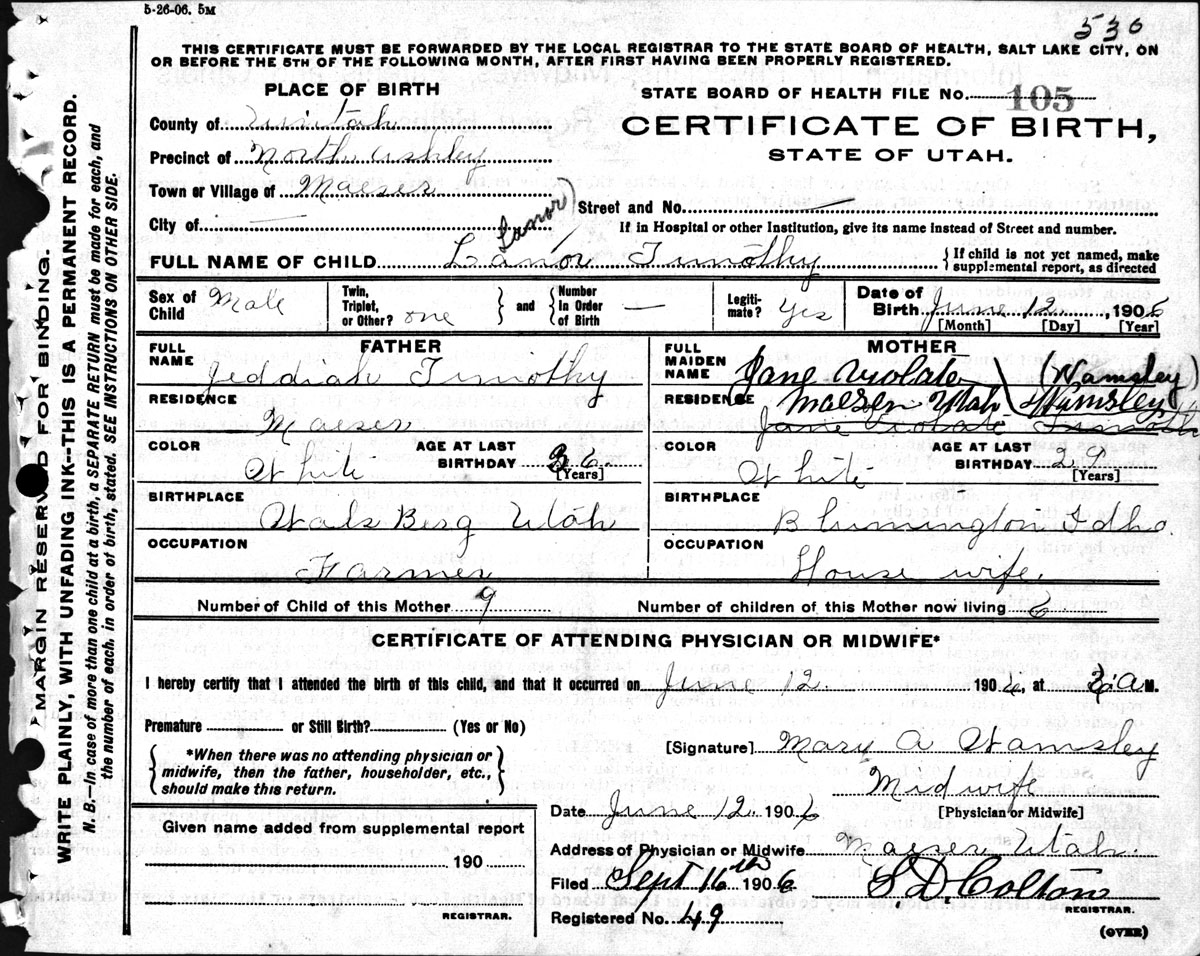 5-26-06. 5M
530
THIS CERTIFICATE MUST BE FORWARDED BY THE LOCAL REGISTRAR TO THE STATE BOARD OF HEALTH, SALT LAKE CITY, ON
OR BEFORE THE 5TH OF THE FOLLOWING MONTH, AFTER FIRST HAVING BEEN PROPERLY REGISTERED.
PLACE OF BIRTH
STATE BOARD OF HEALTH FILE No. 105
County of Uintah
CERTIFICATE OF BIRTH,
Precinct of North Ashley
STATE OF UTAH.
Town or Village of Maeser
Lanor)
Street and No.
City of —
If in Hospital or other Institution, give its name instead of Street and number.
FULL NAME OF CHILD Lanor Timothy
{ If child is not yet named, make
supplemental report, as directed
Sex of Child Male
Twin, Triplet, or Other? one } and { Number in Order of Birth —
Legitimate? Yes
Date of Birth June 12, 1906
[Month] [Day] [Year]
FATHER
FULL NAME Jeddiah Timothy
RESIDENCE
Maeser
COLOR White
AGE AT LAST BIRTHDAY 36
[Years]
BIRTHPLACE
Wals Berg Utah
OCCUPATION
Farmer
MOTHER
FULL MAIDEN NAME Jane Violate (Wamsley)
RESIDENCE Maeser Utah Wamsley
Jane Violate Timoth
COLOR White
AGE AT LAST BIRTHDAY 29
[Years]
BIRTHPLACE
Blumington Idho
OCCUPATION
House wife.
Number of Child of this Mother 9
Number of children of this Mother now living 6
CERTIFICATE OF ATTENDING PHYSICIAN OR MIDWIFE*
I hereby certify that I attended the birth of this child, and that it occurred on June 12 1906, at A M.
Premature or Still Birth? (Yes or No)
{ *When there was no attending physician or
midwife, then the father, householder, etc.,
should make this return. }
[Signature] Mary A Wamsley
Midwife
[Physician or Midwife]
Date June 12. 1906
Address of Physician or Midwife Maeser Utah.
Given name added from supplemental report
190
REGISTRAR.
Filed Sept 16th 1906
S. D. Colton
REGISTRAR.
Registered No. 49
(OVER)
MARGIN RESERVED FOR BINDING.
WRITE PLAINLY, WITH UNFADING INK--THIS IS A PERMANENT RECORD.
N. B.—In case of more than one child at a birth, a SEPARATE RETURN must be made for each, and
the number of each, in order of birth, stated. SEE INSTRUCTIONS ON OTHER SIDE.